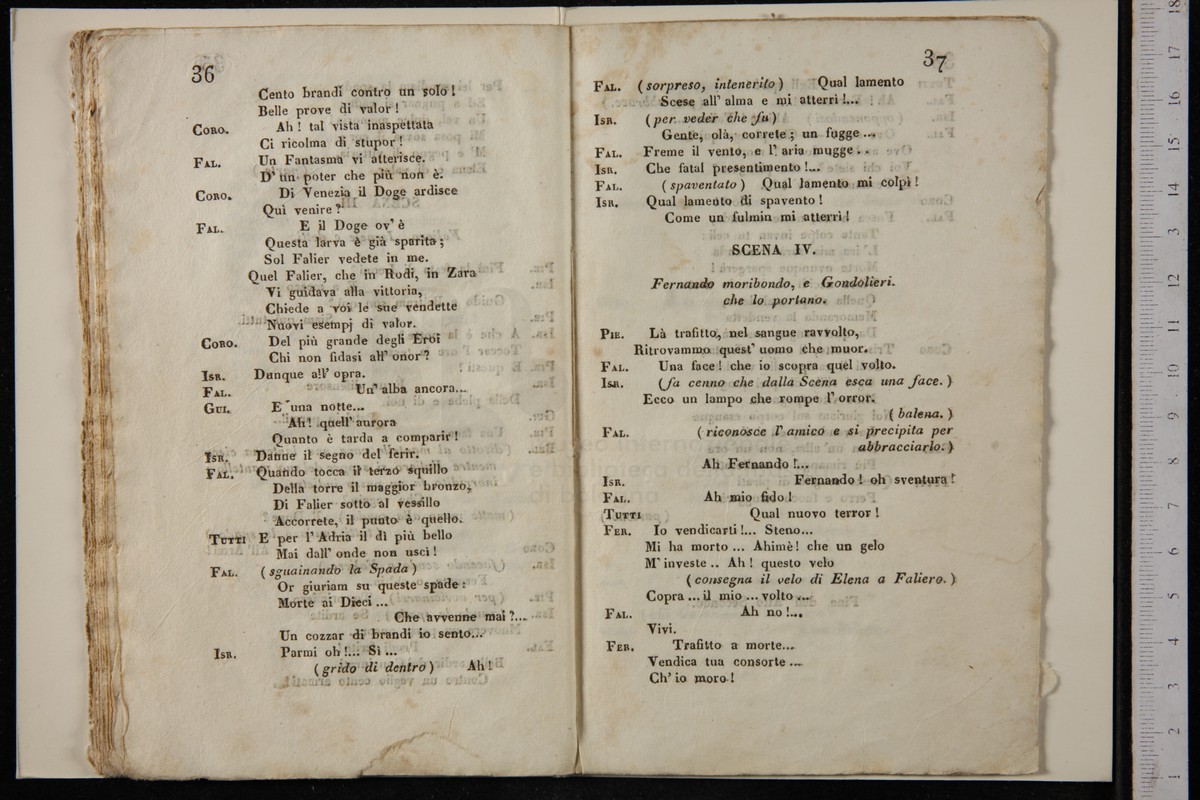 36
Cento brandi contro un solo!
Belle prove di valor!
CORO. Ah! tal vista inaspettata
Ci ricolma di stupor!
FAL. Un Fantasma vi atterisce.
D' un poter che più non è.
CORO. Di Venezia il Doge ardisce
Quì venire?
FAL. E il Doge ov' è
Questa larva è già sparita;
Sol Falier vedete in me.
Quel Falier, che in Rodi, in Zara
Vi guidava alla vittoria,
Chiede a voi le sue vendette
Nuovi esempj di valor.
CORO. Del più grande degli Eroi
Chi non fidasi all' onor?
ISR. Dunque all' opra.
FAL. Un' alba ancora...
GUI. E' una notte...
Ah! quell' aurora
Quanto è tarda a comparir!
ISR. Danne il segno del ferir.
FAL. Quando tocca il terzo squillo
Della torre il maggior bronzo,
Di Falier sotto al vessillo
Accorrete, il punto è quello.
TUTTI E per l' Adria il dì più bello
Mai dall' onde non uscì!
FAL. (sguainando la Spada)
Or giuriam su queste spade:
Morte ai Dieci...
Che avvenne mai?...
Un cozzar di brandi io sento...
ISR. Parmi oh!... Sì...
(grido di dentro) Ah!
37
FAL. (sorpreso, intenerito) Qual lamento
Scese all' alma e mi atterrì!...
ISR. (per veder che fu)
Gente, olà, correte; un fugge...
FAL. Freme il vento, e l' aria mugge..
ISR. Che fatal presentimento!...
FAL. (spaventato) Qual lamento mi colpì!
ISR. Qual lamento di spavento!
Come un fulmin mi atterrì!
SCENA IV.
Fernando moribondo, e Gondolieri.
che lo portano.
PIE. Là trafitto, nel sangue ravvolto,
Ritrovammo quest' uomo che muor.
FAL. Una face! che io scopra quel volto.
ISR. (fa cenno che dalla Scena esca una face.)
Ecco un lampo che rompe l' orror.
(balena.)
FAL. (riconosce l' amico e si precipita per
abbracciarlo.)
Ah Fernando!...
ISR. Fernando! oh sventura!
FAL. Ah mio fido!
TUTTI Qual nuovo terror!
FER. Io vendicarti!... Steno...
Mi ha morto... Ahimè! che un gelo
M' investe.. Ah! questo velo
(consegna il velo di Elena a Faliero.)
Copra... il mio... volto...
FAL. Ah no!...
Vivi.
FER. Trafitto a morte...
Vendica tua consorte...
Ch' io moro!